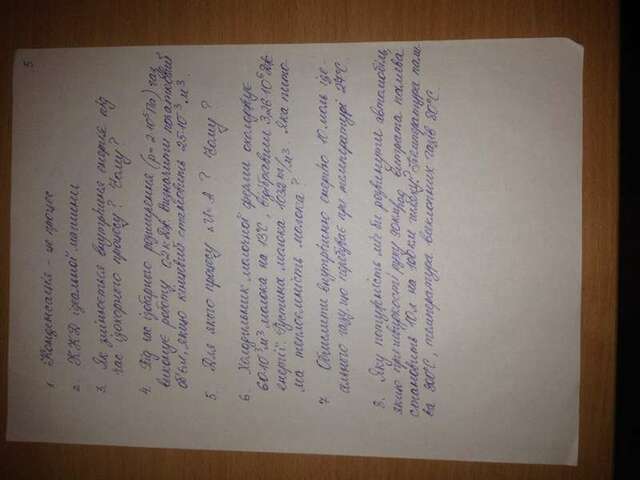 5
1 Конденсація - це процес
2 ККД ідеальної машини
3. Як змінюється внутрішня енергія під
час ізохорного процесу? Чому?
4. Під час ізобарного розширення (p = 2·10⁵Па) газ
виконує роботу 0,2 кДж. Визначити початковий
об'єм, якщо кінцевий становить 2,5·10⁻³ м³.
5. Для якого процесу ΔU=A? Чому?
6. Холодильник молочної ферми охолоджує
60·10⁻³ м³ молока на 13°C,
енергії. Густина молока 1032 кг/м³. Яка пито-
ма теплоємність молока?
7 Обчислити внутрішню енергію 10 моль іде-
ального газу, що перебуває при температурі 27°C.
8. Яку потужність міг би розвинути автомобіль,
якщо при швидкості руху витрата палива
становить 10 л на 100 км шляху? Температура пали-
ва 800°C, температура вихлопних газів 80°C.